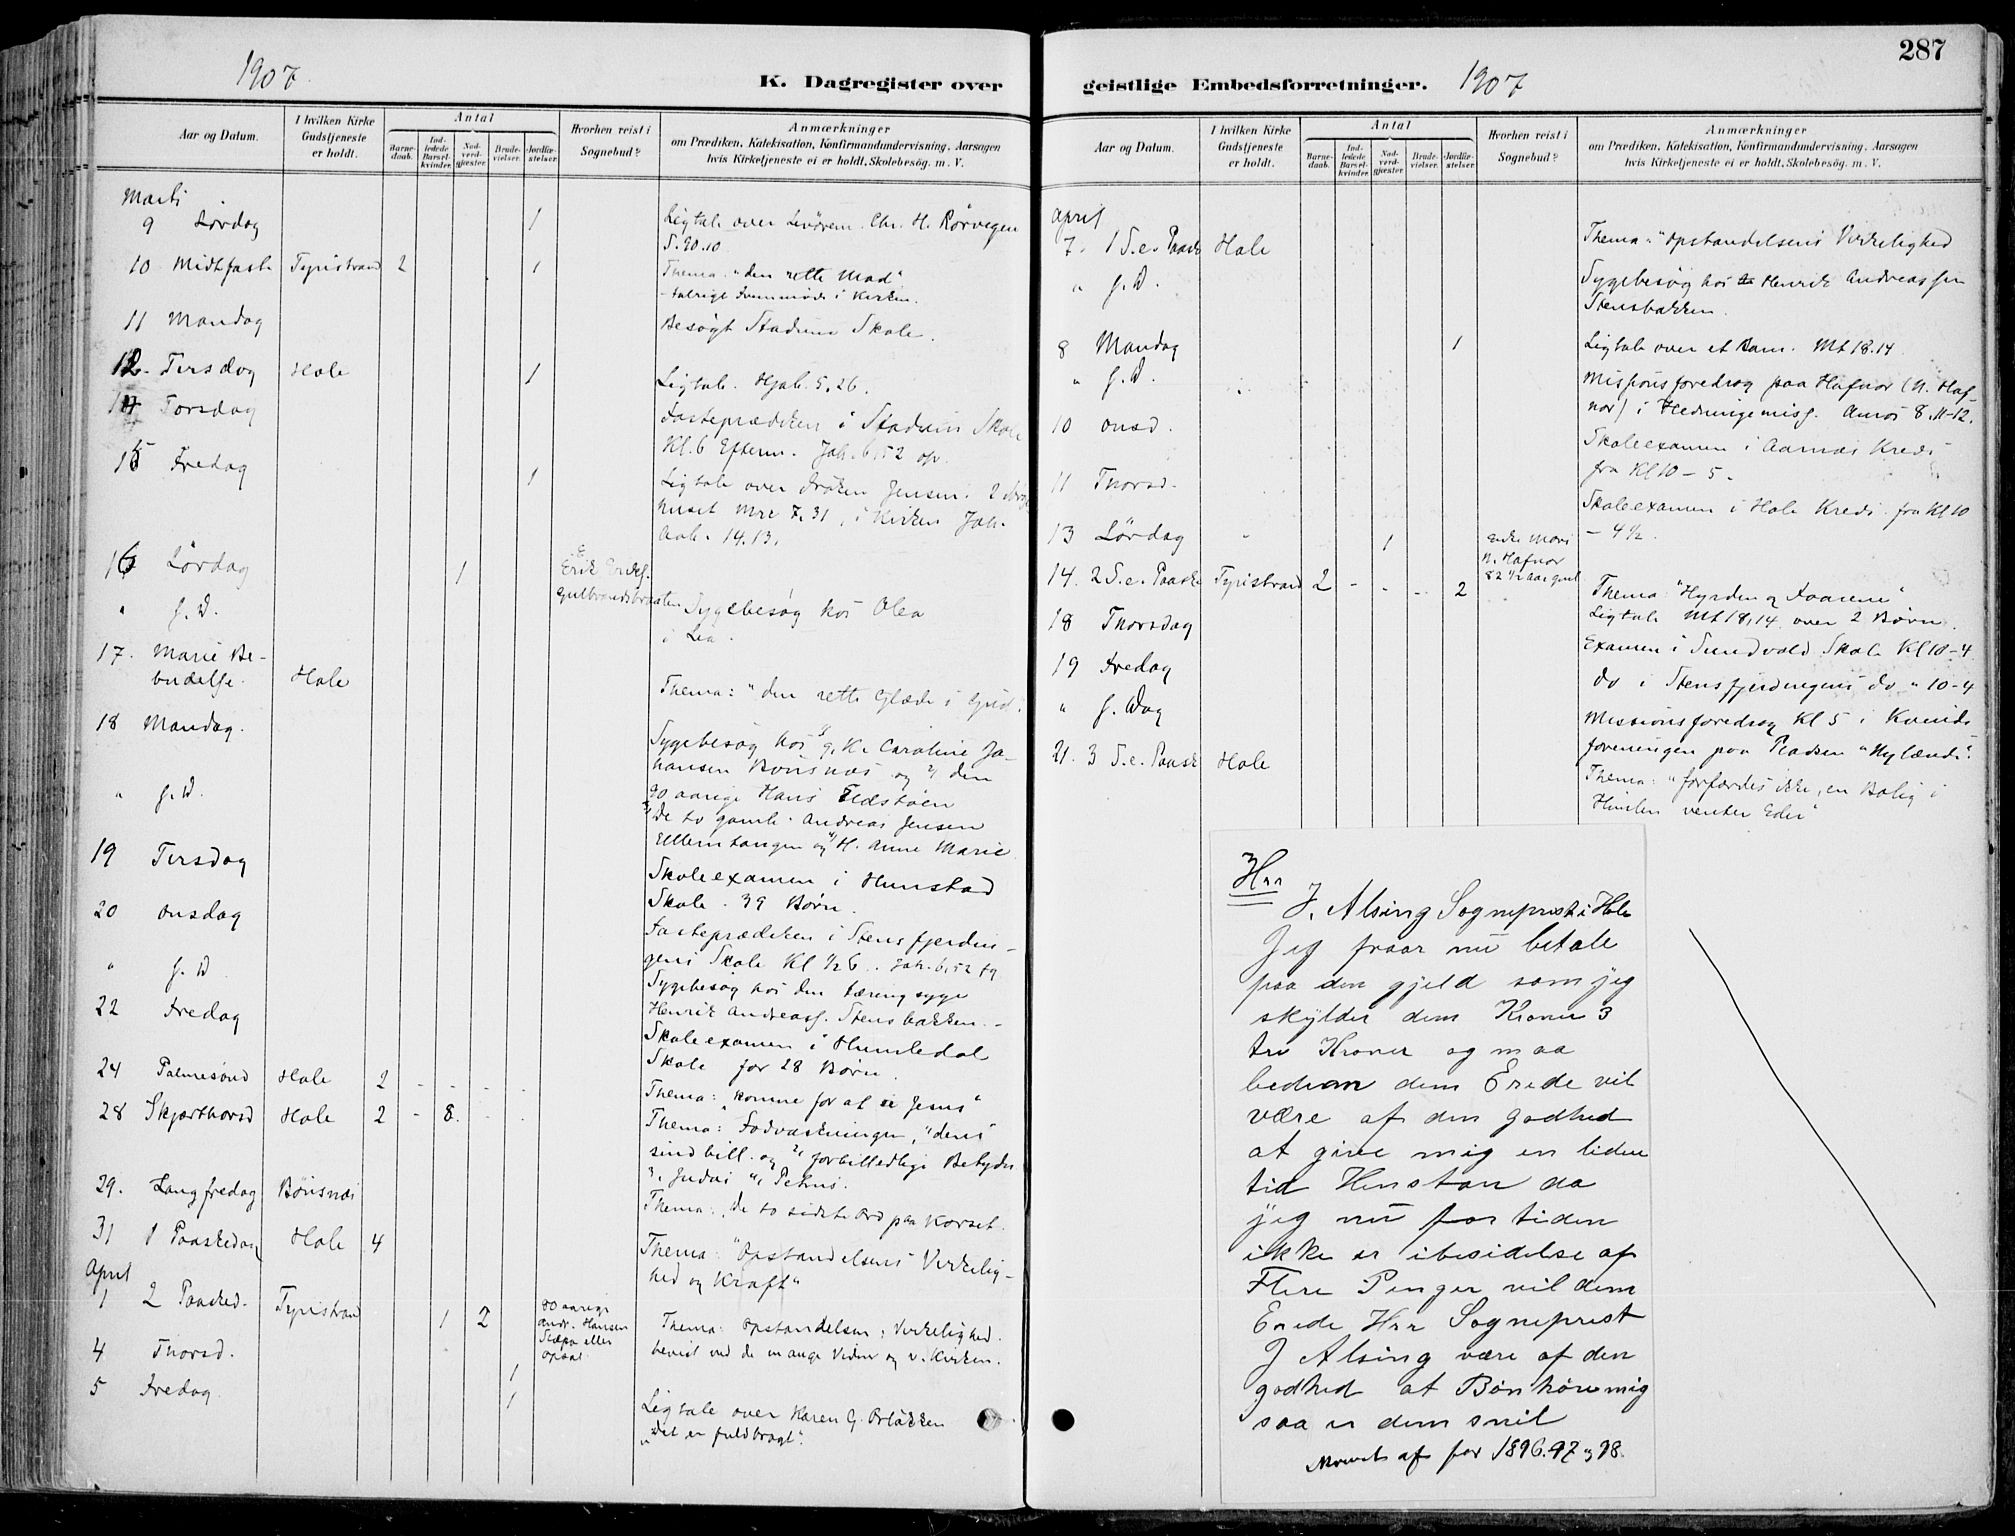 1907
K. Dagregister over
Aar og Datum.
I hvilken Kirke Gudstjeneste er holdt.
Antal
Barnedaab.
Indledede Barselkvinder.
Nadverdgjester.
Brudevielser.
Jordfæstelser.
Hvorhen reist i Sognebud?
Anmærkninger
om Prædiken, Katekisation, Konfirmandundervisning. Aarsagen
hvis Kirketjeneste ei er holdt. Skolebesøg. m. V.
Marts
9 Lørdag 1 Ligtale over Chr. H. Rørvegen
S. 90.10
10 Midtfaste Tyristrand 2 1 Thema: "den rette Mad"
talrigt Fremmøde i Kirken.
11 Mandag Besøgt Stadum Skole.
12. Tirsdag Hole 1 Ligtale. Hjob. 5,26.
14 Torsdag Fasteprædiken i Stadum Skole
Kl. 6 Efterm. Joh. 6,52 ov.
15 Fredag 1 Ligtale over Frøken Jensen.
huset Mrc 7,31, i Kirken Joh.
Aab. 14.13.
16 Lørdag 1 Erik Eriks.
Gulbrandsbraaten
" s. D. Sygebesøg hos Olea
i Lia.
17. Marie Be-
budelse. Hole Thema: "den rette Glæde i Gud.
18 Mandag. Sygebesøg hos g. K. Caroline Jo-
hansen Bønsnæs og 2) den
" s. D. 90 aarige Hans
3) De to gamle. Andreas Jensen
Ullerntangen og 4) H. Anne Marie
19 Tirsdag Skoleexamen i Hunstad
Skole. 39 Børn.
20 Onsdag Fasteprædiken i Stensfjerdin-
gens Skole Kl ½6. Joh. 6,52 fg
" s. D Sygebesøg hos den tæringsyge
Henrik Andreass. Stensbakken. -
22 Fredag Skoleexamen i Humledal
Skole for 28 Børn.
24 Palmesønd Hole 2 - - - - Thema: "komme for at se Jesus"
28 Skjærthorsd Hole 2 - 8. - - Thema: Fodvaskningen, "dens
sindbill. og 2) forbilledlige Betydn
3, Judas 4, Petrus.
29. Langfredag Bønsnæs Thema: "De to sidste Ord paa Korset.
31 1 Paaskedag Hole 4 Thema: "Opstandelsens Virkelig-
hed og Kraft"
April
1 2 Paasked. Tyristrand 1 2 80 aarige
Andr. Hansen
eller
Opsal Thema: Opstandelsens Virkelighed.
bevist ved de mange Vidner og v. Kirken.
4 Thorsd. 1
5 Fredag 1 Ligtale over Karen G. Orløkken
"Det er fuldbragt".
geistlige Embedsforretninger. 1907
287
Aar og Datum.
I hvilken Kirke Gudstjeneste er holdt.
Antal
Barnedaab.
Indledede Barselkvinder.
Nadverdgjester.
Brudevielser.
Jordfæstelser.
Hvorhen reist i Sognebud?
Anmærkninger
om Prædiken, Katekisation, Konfirmandundervisning. Aarsagen
hvis Kirketjeneste ei er holdt. Skolebesøg. m. V.
April
7. 1 S. e. Paaske Hole Thema: "Opstandelsens Virkelighed
" s. D. Sygebesøg hos Henrik Andreassen
Stensbakken.
8 Mandag 1 Ligtale over et Barn. Mt 18.14
" s. D. Missionsforedrag paa Hafnor (N. Haf-
nor) i Hedningemiss. Amos 8.11-12.
10 Onsd. Skoleexamen i Aarnæs Kreds
fra Kl 10 - 5.
11 Thorsd. Skoleexamen i Hole Kreds. fra Kl 10
- 4½.
13 Lørdag " 1 Enke Mari
N. Hafnor
82½ aar gml
14. 2 S. e. Paaske Tyristrand 2 - - - 2 Thema: "Hyrden og Faarene"
Ligtale Mt 18,14 over 2 Børn.
18 Thorsdag Examen i Sundvold Skole Kl 10-4
19 Fredag do i Stensfjerdingens do " 10-4
" s. Dag Missionsforedrag Kl 5 i Kvinde
foreningen paa Pladsen "Nylænde".
21. 3 S. e. Paaske Hole Thema: "forfærdes ikke, en Bolig i
Himlen venter Eder"
Hrr
J. Alsing Sogneprest i Hole
Jeg faaar nu betale
paa den gjeld som jeg
skylder dem Kroner 3
tre Kroner og maa
bedram dem Erede vil
være af den godhed
at give mig en liden
tid Henstan da
jeg nu for tiden
ikke er ibesidelse af
Flere Penger vil dem
Erede Hrr Sogneprest
J Alsing være af den
godhed at Bønhøre mig
saa er dem snil
af for 1896.97 og 98.